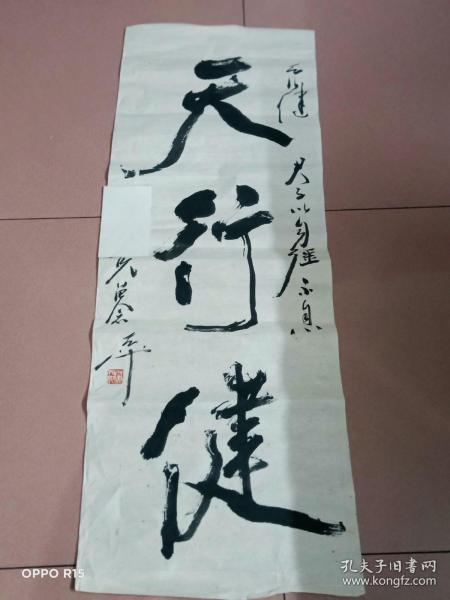 天行健
天行健 君子以自强不息
OPPO R15
孔夫子旧书网
www.kongfz.com